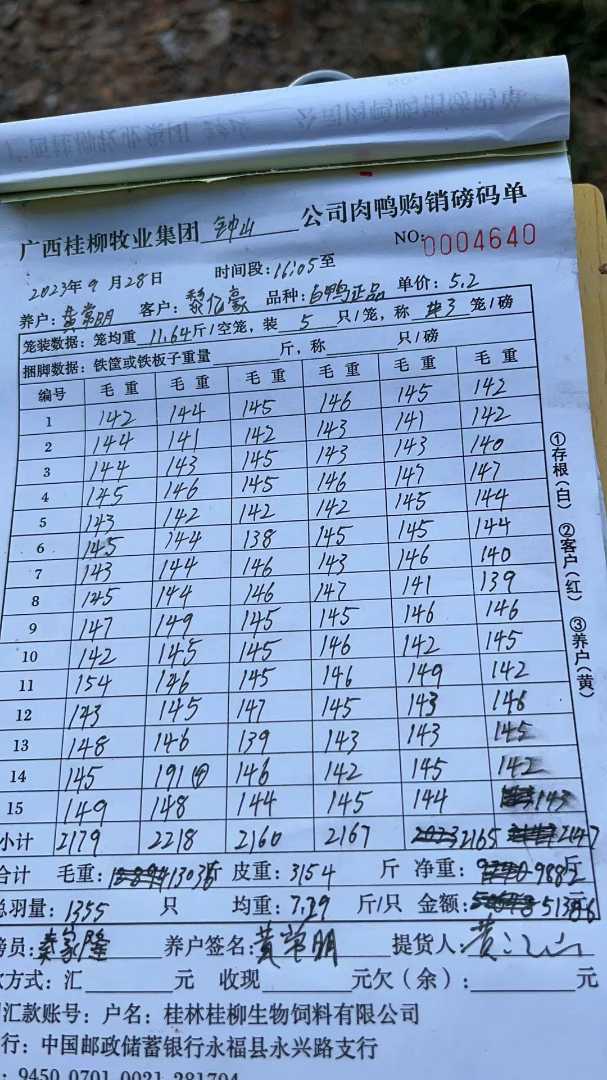 广西桂柳牧业集团 钟山 公司肉鸭购销磅码单
NO:0004640
2023年9月28日 时间段:16:05至
养户:黄常明 客户:黎亿豪 品种:白鸭正品 单价:5.2
笼装数据:笼均重11.64斤/空笼,装5只/笼,称3笼/磅
捆脚数据:铁筐或铁板子重量 斤,称 只/磅
编号 毛重 毛重 毛重 毛重 毛重 毛重
1 142 144 145 146 145 142
2 144 141 142 143 141 142
3 144 143 145 143 143 140
4 145 146 145 146 147 147
5 143 142 142 142 145 144
6 145 144 138 145 145 144
7 143 144 146 143 146 140
8 145 144 146 147 141 139
9 147 149 145 145 146 146
10 142 145 145 146 142 145
11 154 146 145 146 149 142
12 143 145 147 145 143 146
13 148 146 139 143 143 145
14 145 191④ 146 142 145 142
15 149 148 144 145 144 143
小计 2179 2218 2160 2167 2165 2147
合计 毛重:13036斤 皮重:3154斤 净重:9882斤
总羽量:1355只 均重:7.29斤/只 金额:51386元
磅员:秦家隆 养户签名:黄常明 提货人:
款方式:汇 元 收现 元欠(余): 元
汇款账号:户名:桂林桂柳生物饲料有限公司
行:中国邮政储蓄银行永福县永兴路支行
:9450 0701 0021 281704
①存根(白) ②客户(红) ③养户(黄)